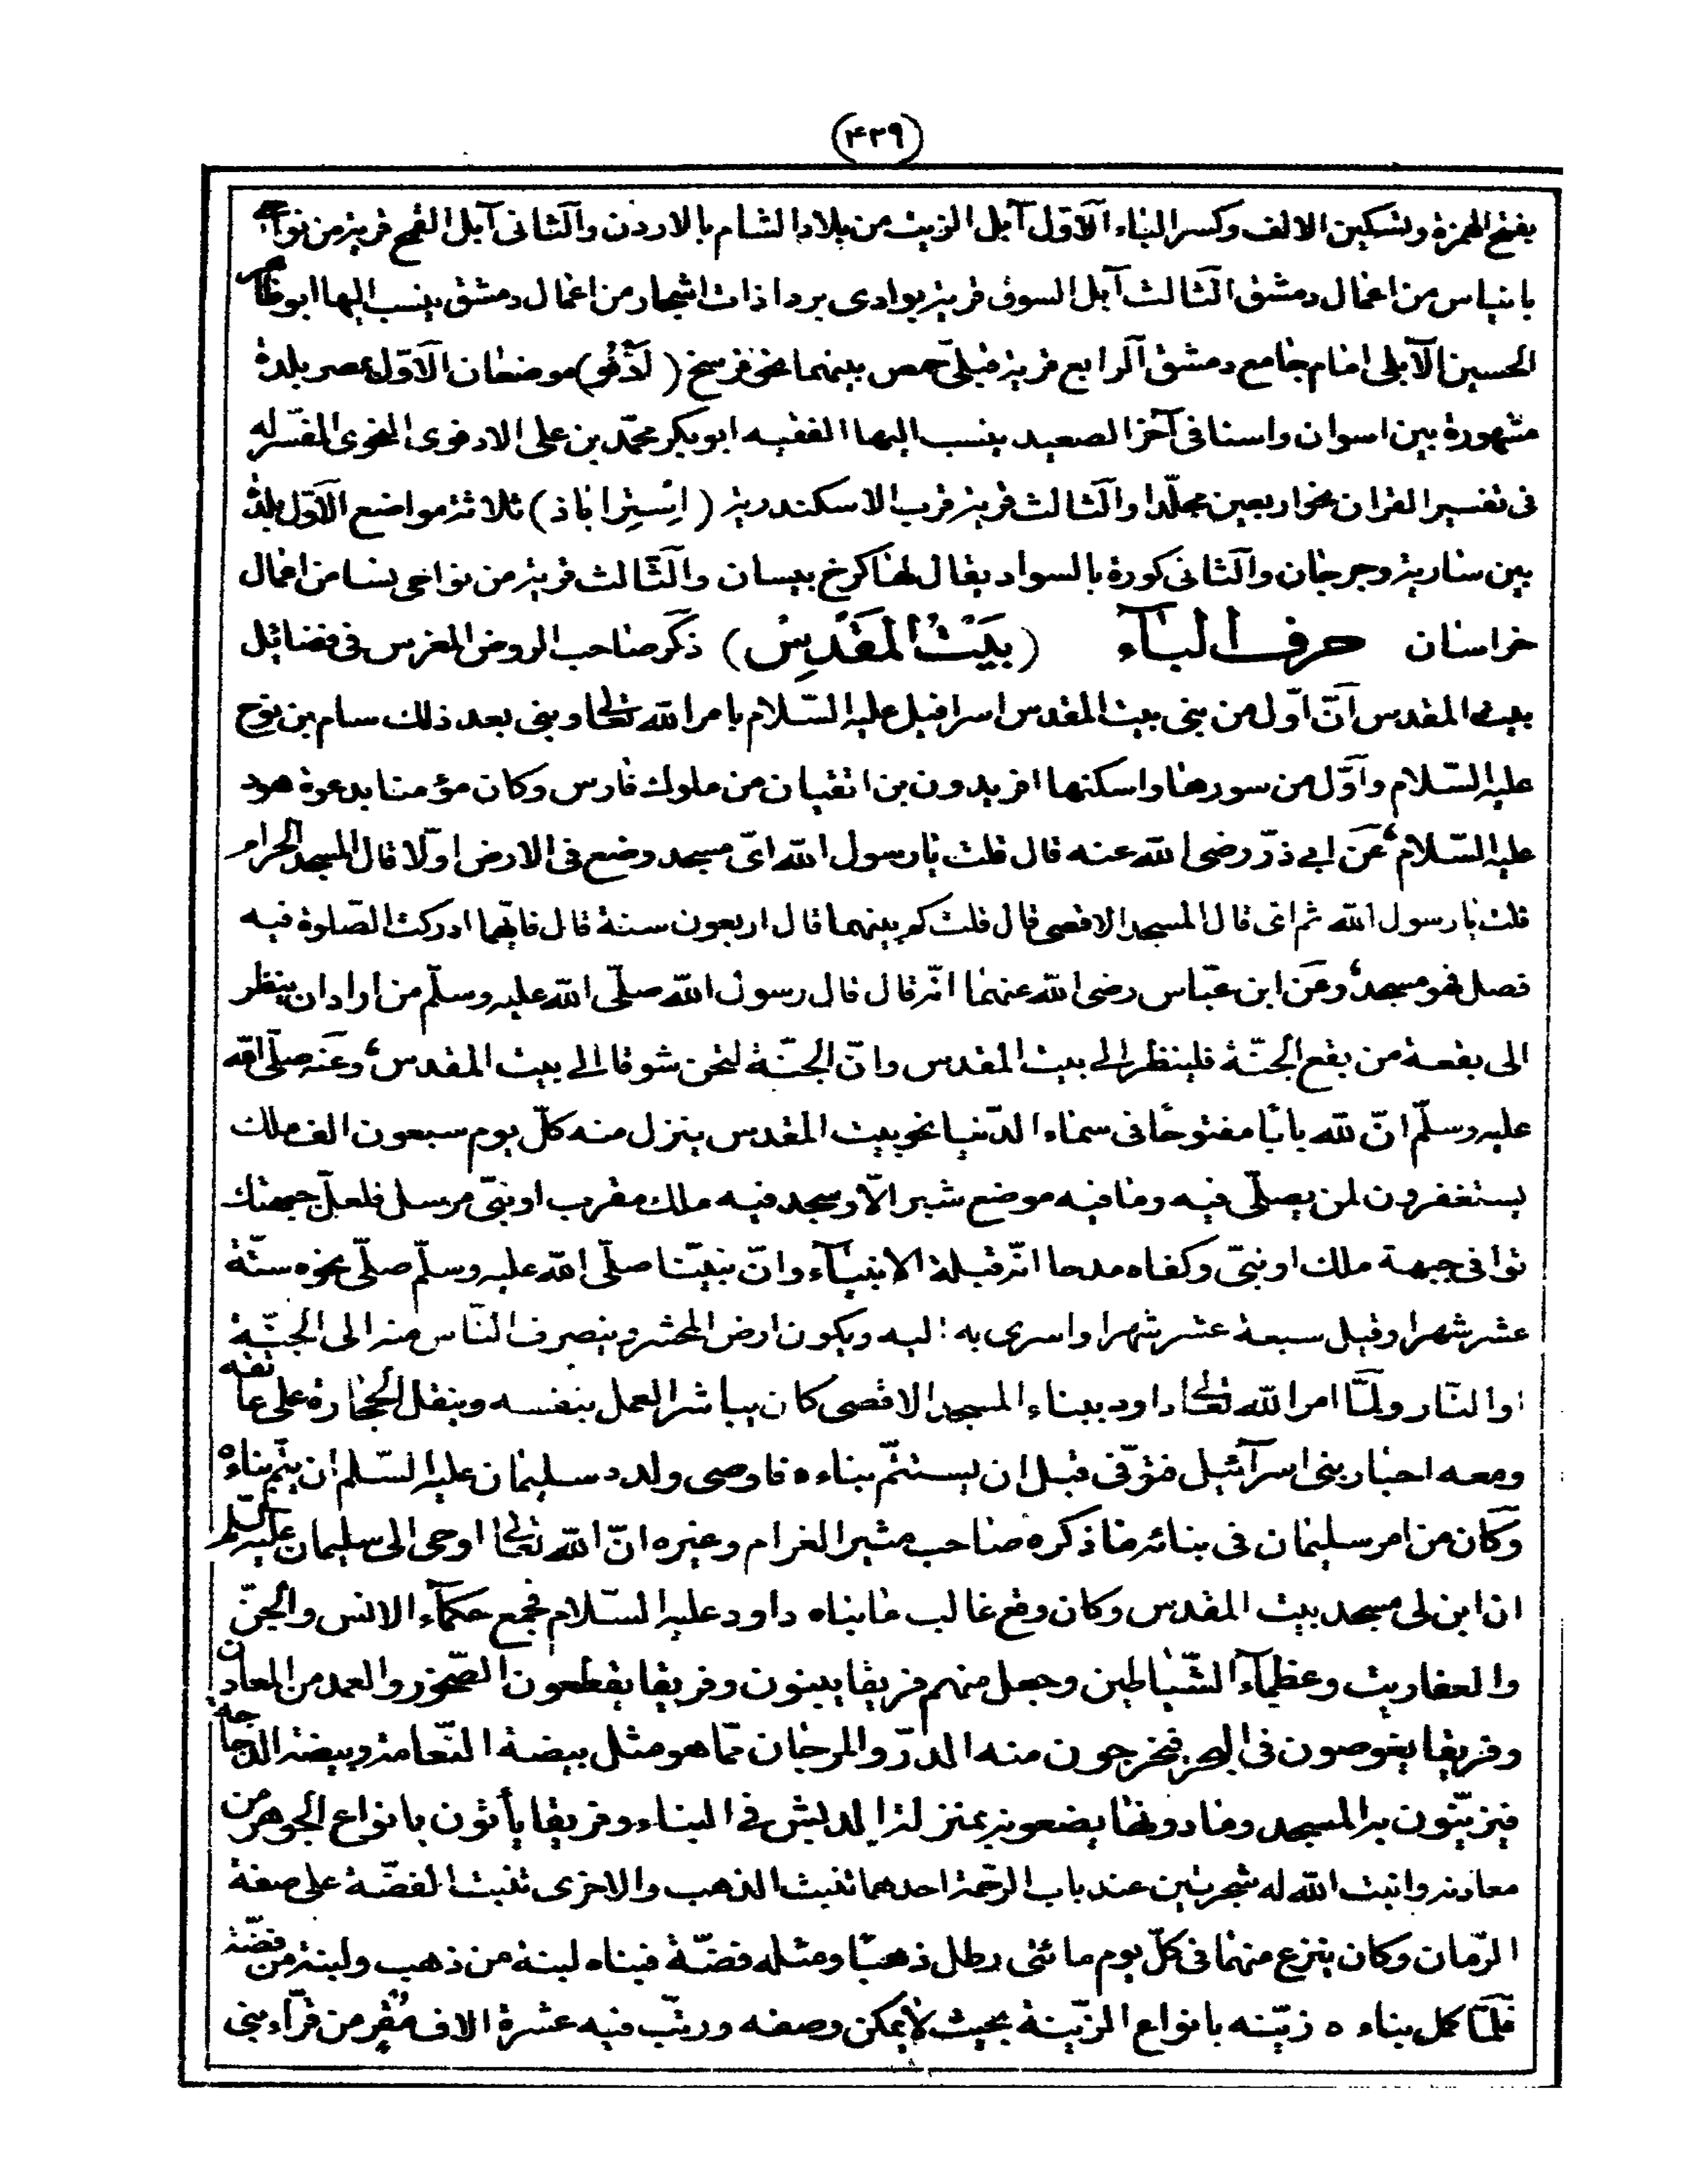 (٤٣٩)
بفتح الهمزة وتسكين الالف وكسر الباء الآوّل آبل الزيت من بلاد الشام بالاردن والثّانى آبل القمح قرية من نواحى
بانياس من اعمال دمشق الثّالث آبل السوق قرية بوادى بردا ذات اشجار من اعمال دمشق ينسب اليها ابو طاهر
الحسين الآبلى امام جامع دمشق الرابع قرية قبلى حمص بينهما نحو فرسخ (اُدْفُو) موضعان الاوّل بمصر بلدة
مشهورة بين اسوان واسنا فى آخر الصعيد ينسب اليها الفقيه ابو بكر محمّد بن على الادفوى النحوى المفسر له
فى تفسير القران نحو اربعين مجلّدا والثّالث قرية قرب الاسكندرية (اِسْتِرْاباذ) ثلاثة مواضع الاوّل بلدة
بين سارية وجرجان والثّانى كورة بالسواد يقال لها كرخ بيسان والثّالث قرية من نواحى نسا من اعمال
خراسان حرف الباء (بَيْتُ المَقْدِسِ) ذكر صاحب الروض المغرس فى فضائل
بيت المقدس انّ اوّل من بنى بيت المقدس اسرافيل عليه السّلام بامر الله تعالى وبنى بعد ذلك سام بن نوح
عليه السّلام واوّل من سورها واسكنها افريدون بن اثفيان من ملوك فارس وكان مؤمنا بدعوة هود
عليه السّلام، عن ابى ذرّ رضى الله عنه قال قلت يا رسول الله اىّ مسجد وضع فى الارض اوّلا قال المسجد الحرام
قلت يا رسول الله ثم اى قال المسجد الاقصى قال قلت كم بينهما قال اربعون سنة قال فاينما ادركت الصّلوة فيه
فصل فهو مسجد، وعن ابن عبّاس رضى الله عنهما انّه قال قال رسول الله صلّى الله عليه وسلّم من اراد ان ينظر
الى بقعة من بقع الجنّة فلينظر الى بيت المقدس وانّ الجنّة لتحن شوقا الى بيت المقدس، وعنه صلّى الله
عليه وسلّم انّ لله بابا مفتوحا فى سماء الدّنيا نحو بيت المقدس ينزل منه كلّ يوم سبعون الف ملك
يستغفرون لمن يصلّى فيه وما فيه موضع شبر الّا وسجد فيه ملك مقرب او نبىّ مرسل فلعلّ جبهتك
توافى جبهة ملك او نبىّ وكفاه مدحا انّه قبلة الانبيآء وانّ نبيّنا صلّى الله عليه وسلّم صلّى نحوه ستّة
عشر شهرا وقيل سبعة عشر شهرا واسرى به اليه ويكون ارض المحشر وينصرف النّاس منه الى الجنّة
او النّار ولمّا امر الله تعالى داود ببناء المسجد الاقصى كان يباشر العمل بنفسه وينقل الحجارة على عاتقه
ومعه احبار بنى اسرآئيل فتوّفى قبل ان يستتمّ بناءه فاوصى ولده سليمان عليه السّلم ان يتمّ بناءه
وكان من امر سليمان فى بنائه ما ذكره صاحب مثير الغرام وغيره انّ الله تعالى اوحى الى سليمان عليه السّلم
ان ابن لى مسجد بيت المقدس وكان وقع غالب ما بناه داود عليه السّلام فجمع حكمآء الانس والجنّ
والعفاريت وعظمآء الشّياطين وجعل منهم فريقا يبنون وفريقا يقطعون الصّخور والعمد من المعادن
وفريقا يغوصون فى البحر فيخرجون منه الدرّ والمرجان ممّا هو مثل بيضة النّعامة وبيضة الدّجاجة
فيزيّنون به المسجد وما دونها يضعونه بمنزلة الدبش فى البناء وفريقا يأتون بانواع الجوهر من
معادنه وانبت الله له شجرتين عند باب الرحّمة احدهما تنبت الذهب والاخرى تنبت الفضّة على صفة
الرّمان وكان ينزع منهما فى كلّ يوم مائتى رطل ذهبا ومثله فضّة فبناه لبنة من ذهب ولبنة من فضّة
فلمّا كمل بناءه زيّنه بانواع الزّينة بحيث لا يمكن وصفه ورتّب فيه عشرة الاف مُقْرِ من قرّآء بنى